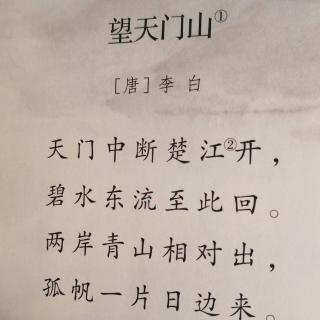 望天门山①
[唐]李白
天门中断楚江②开，
碧水东流至此回。
两岸青山相对出，
孤帆一片日边来。